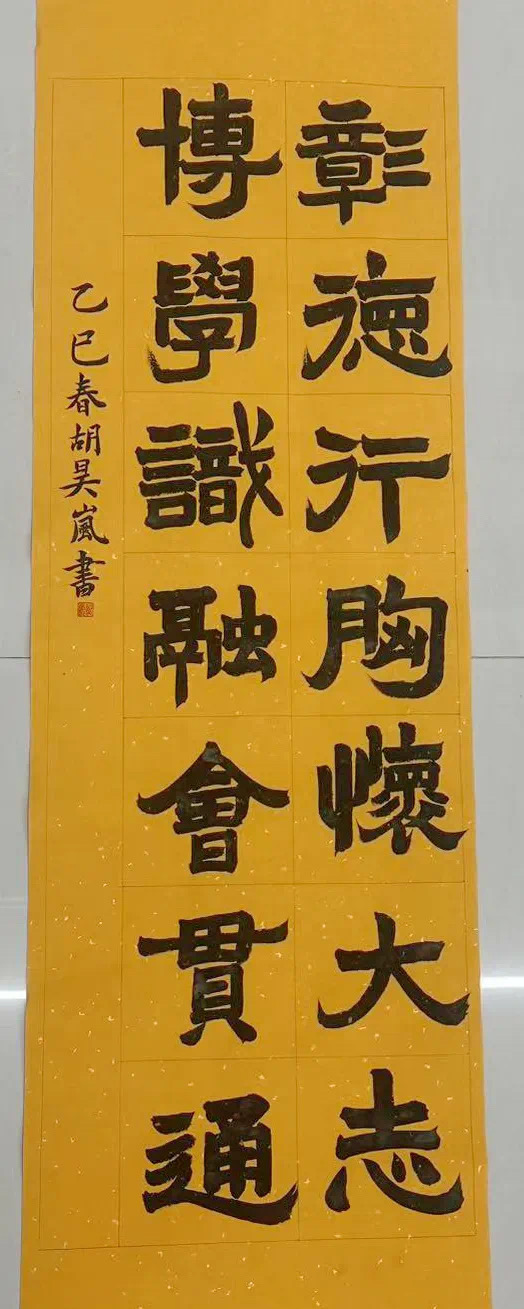 彰德行胸懷大志
博學識融會貫通
乙巳春胡昊嵐書